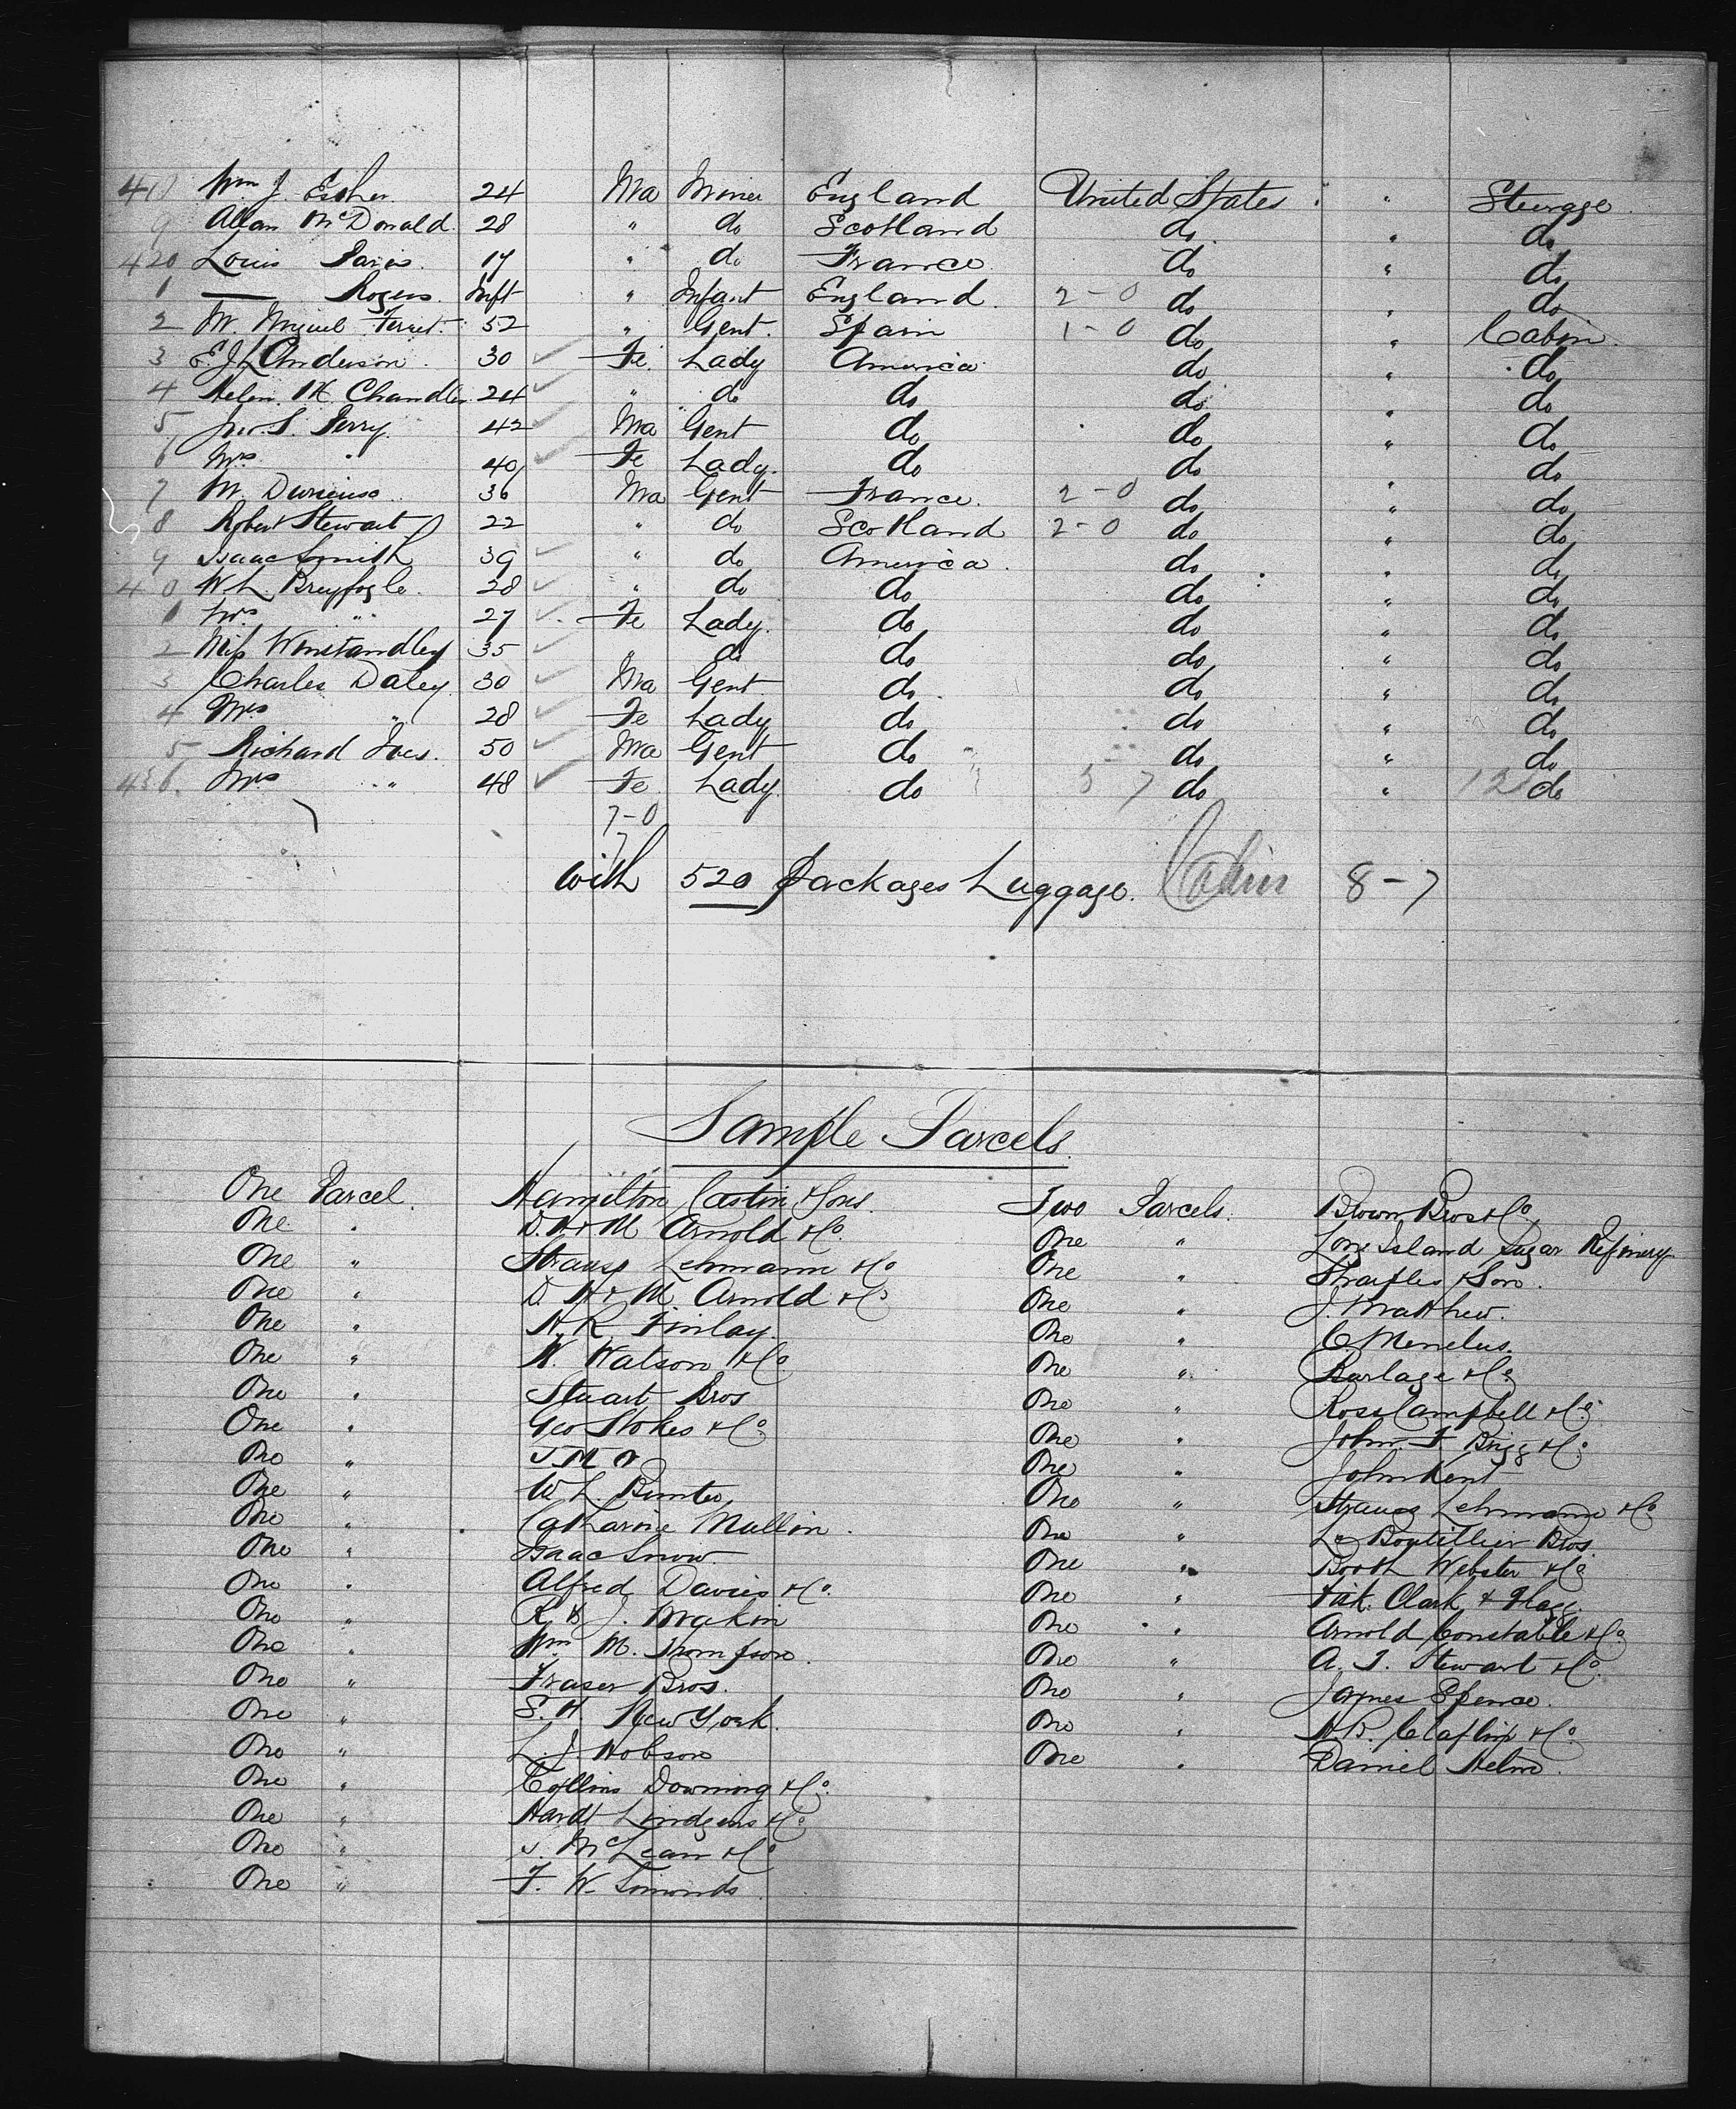 Wm J. Escher 24 Ma Miner England United States " Steerage
9 Allan McDonald 28 " do Scotland do " do
420 Louis Paris 17 " do France do " do
1 — Rogers Inft " Infant England 2-0 do " do
2 M. Miguel Ferret 52 " Gent. Spain 1-0 do " Cabin
3 E.J.L. Anderson 30 Fe Lady America do " do
4 Helen M. Chandler 24 " do do do " do
5 Jno. S. Perry 42 Ma Gent do do " do
6 Mrs " 40 Fe Lady. do do " do
7 M. 36 Ma Gent France. 2-0 do " do
8 Robert Stewart 22 " do Scotland 2-0 do " do
9 Isaac Smith 39 " do America do " do
W.L. Breyfogle 28 " do do do " do
1 Mrs " 27 Fe Lady. do do " do
2 Miss Winstandley 35 " do do do " do
3 Charles Daley 30 Ma Gent do do " do
4 Mrs " 28 Fe Lady do do " do
5 Richard Ives. 50 Ma Gent do do " do
436. Mrs " 48 Fe Lady do 5 7 do " 12 do
7-0
7
with 520 Packages Luggage. Cabin 8-7
Sample Parcels.
One Parcel. Hamilton Castin & Sons. Two Parcels. Brown Bros & Co
One " D.H & M Arnold & Co. One " Long Island Sugar Refinery
One " Strauss Lehmann & Co One " Sharples & Son.
One " D. H & M. Arnold & Co One " J. Matthew.
One " H.R. Finlay. One " C. Menelus.
One " W. Watson & Co One " Burlage & Co
One " Stuart Bros One " Ross Campbell & Co.
One " Geo Stokes & Co One " John F. Brigg & Co
One " One " John Kent
One " W.L. Bunter One " Strauss Lehmann & Co
One " Catharine Mullin. One " Le Boutillier Bros
One " Isaac Snow. One " Booth Webster & Co
One " Alfred Davies & Co. One " Fisk Clark & Flagg.
One " R & J. Makin One " Arnold Constable & Co
One " Wm. M. Thompson. One " A. T. Stewart & Co
One " Fraser Bros. One " James Spence.
One " S.H. New York. One " H.B. Claflin & Co
One " L. J. Hobson One " Daniel Helm.
One " Collins Downing & Co.
One " Hardt Lindgens & Co
One " J. McLean & Co
One " F. W. Simonds